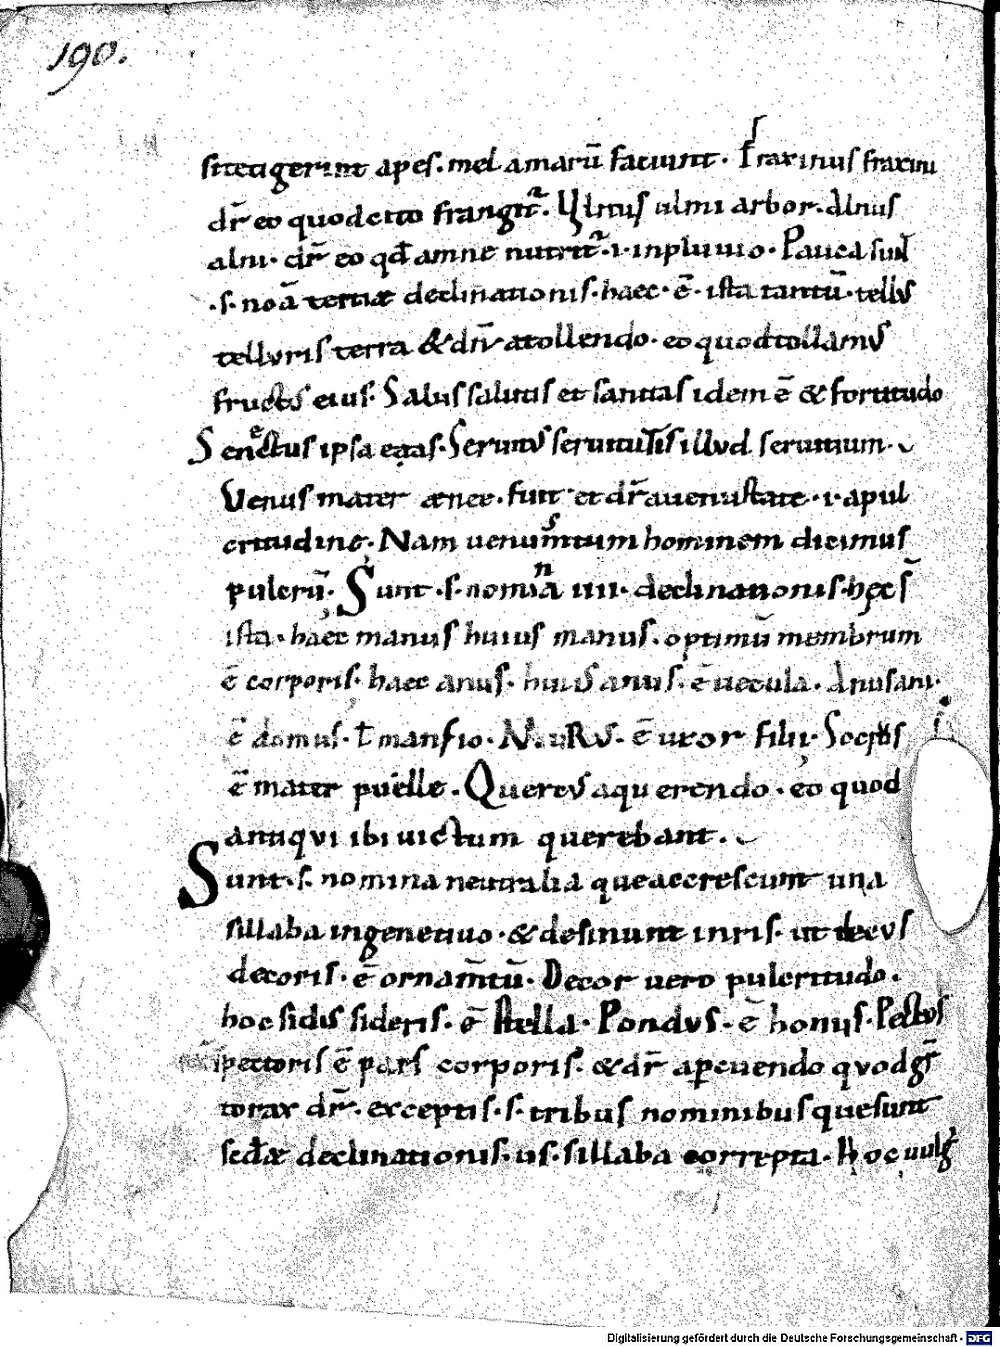 190.
sitetigerint apes. mel amarū faciunt. Fraxinus fraxini
dr̄ eo quodcito frangit᷑. Ylmus ulmi arbor. Alnus
alni. dr̄ eo qđ amne nutrit᷑. i. inpluuio. Pauca sun̄
.s. noā tertiæ declinationis. haec. ē. ista tantū. tellus
telluris terra & dr̄ atollendo. eo quodtollamus
fructus eius. Salus salutis et sanitas idem ē & fortitudo
Senectus ipsa etas. Seruitus seruitutis illud seruitium.
Venus mater æneę. fuit et dr̄ auenustate. i. apul
critudine. Nam uenustum hominem dicimus
pulcrū. Sunt .s. nomina iiii. declinationis. hęc s̄
ista. haec manus huius manus. optimū membrum
ē corporis. haec anus. huius anus. ē uecula. Anus ani.
ē domus. ł mansio. NuRus. ē uxor filii. Socrus
ē mater puelle. Quercus aquerendo. eo quod
antiqui ibi uictum querebant.
Sunt .s. nomina neutralia queaccrescunt una
sillaba ingenetiuo. & desinunt inris. ut decus
decoris. ē ornam̄tū. Decor uero pulcritudo.
hoc sidus sideris. ē stella. Pondus. ē honus. Pectus
pectoris ē pars corporis. & dr̄ apcuendo quodgr̄
torax dr̄. exceptis .s. tribus nominibus quesunt
scdæ declinationis. us. sillaba correpta. Hoc uulg᷑
Digitalisierung gefördert durch die Deutsche Forschungsgemeinschaft - DFG